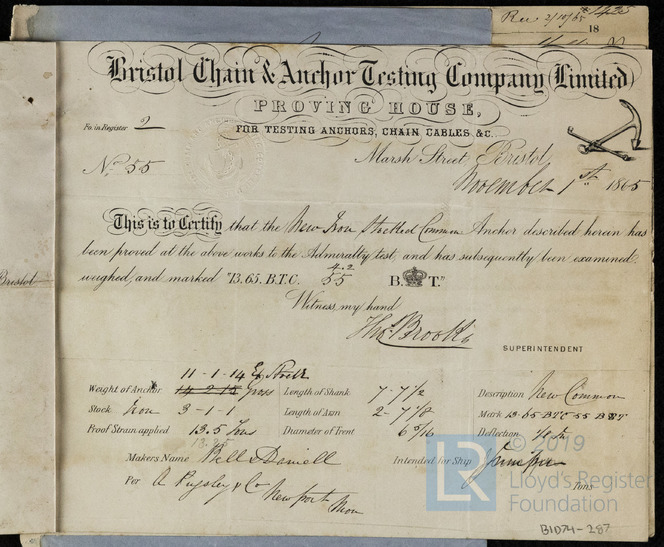 Rec 2/10/65
18
Bristol Chain & Anchor Testing Company (Limited)
PROVING HOUSE,
FOR TESTING ANCHORS, CHAIN CABLES, &C.
Fo. in Register 2
No. 55
Marsh Street, Bristol,
November 1st 1865
This is to Certify that the New Iron Stockled Common Anchor described herein has
been proved at the above works to the Admiralty test, and has subsequently been examined,
weighed, and marked "13.65. B.T.C. 4.2 55 B. T."
Witness my hand
Thos. Brooks
SUPERINTENDENT
11-1-14 Ex Stock
Weight of Anchor 14-2-15 gross Length of Shank 7-7 1/2 Description New Common
Stock Iron 3-1-1 Length of Arm 2-7 7/8 Mark 13-65 BTC 55 B T
Proof Strain applied 13.5 Tons Diameter of Trent 6 5/16 Deflection
Makers Name Bell & Daniell Intended for Ship Juniper
Tons
Per A Pugsley & Co Newport Mon
Bristol
© 2019
Lloyd's Register
Foundation
LR
BID74-287